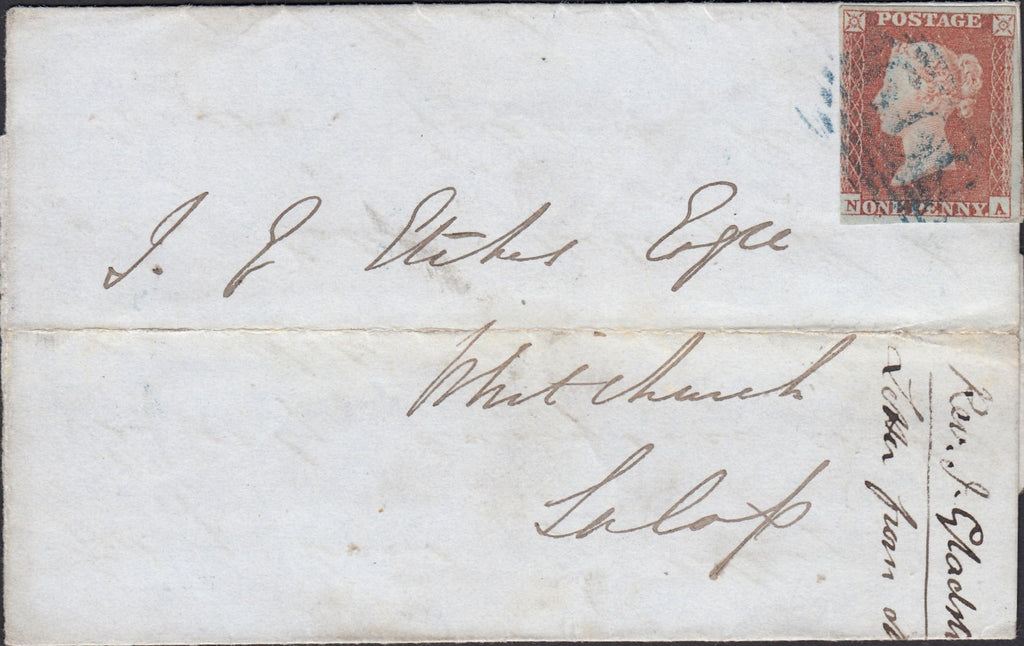 POSTAGE
N ONE PENNY A
J.
Esqre
Whitchurch
Salop
Rev. J. Gladst
Letter from